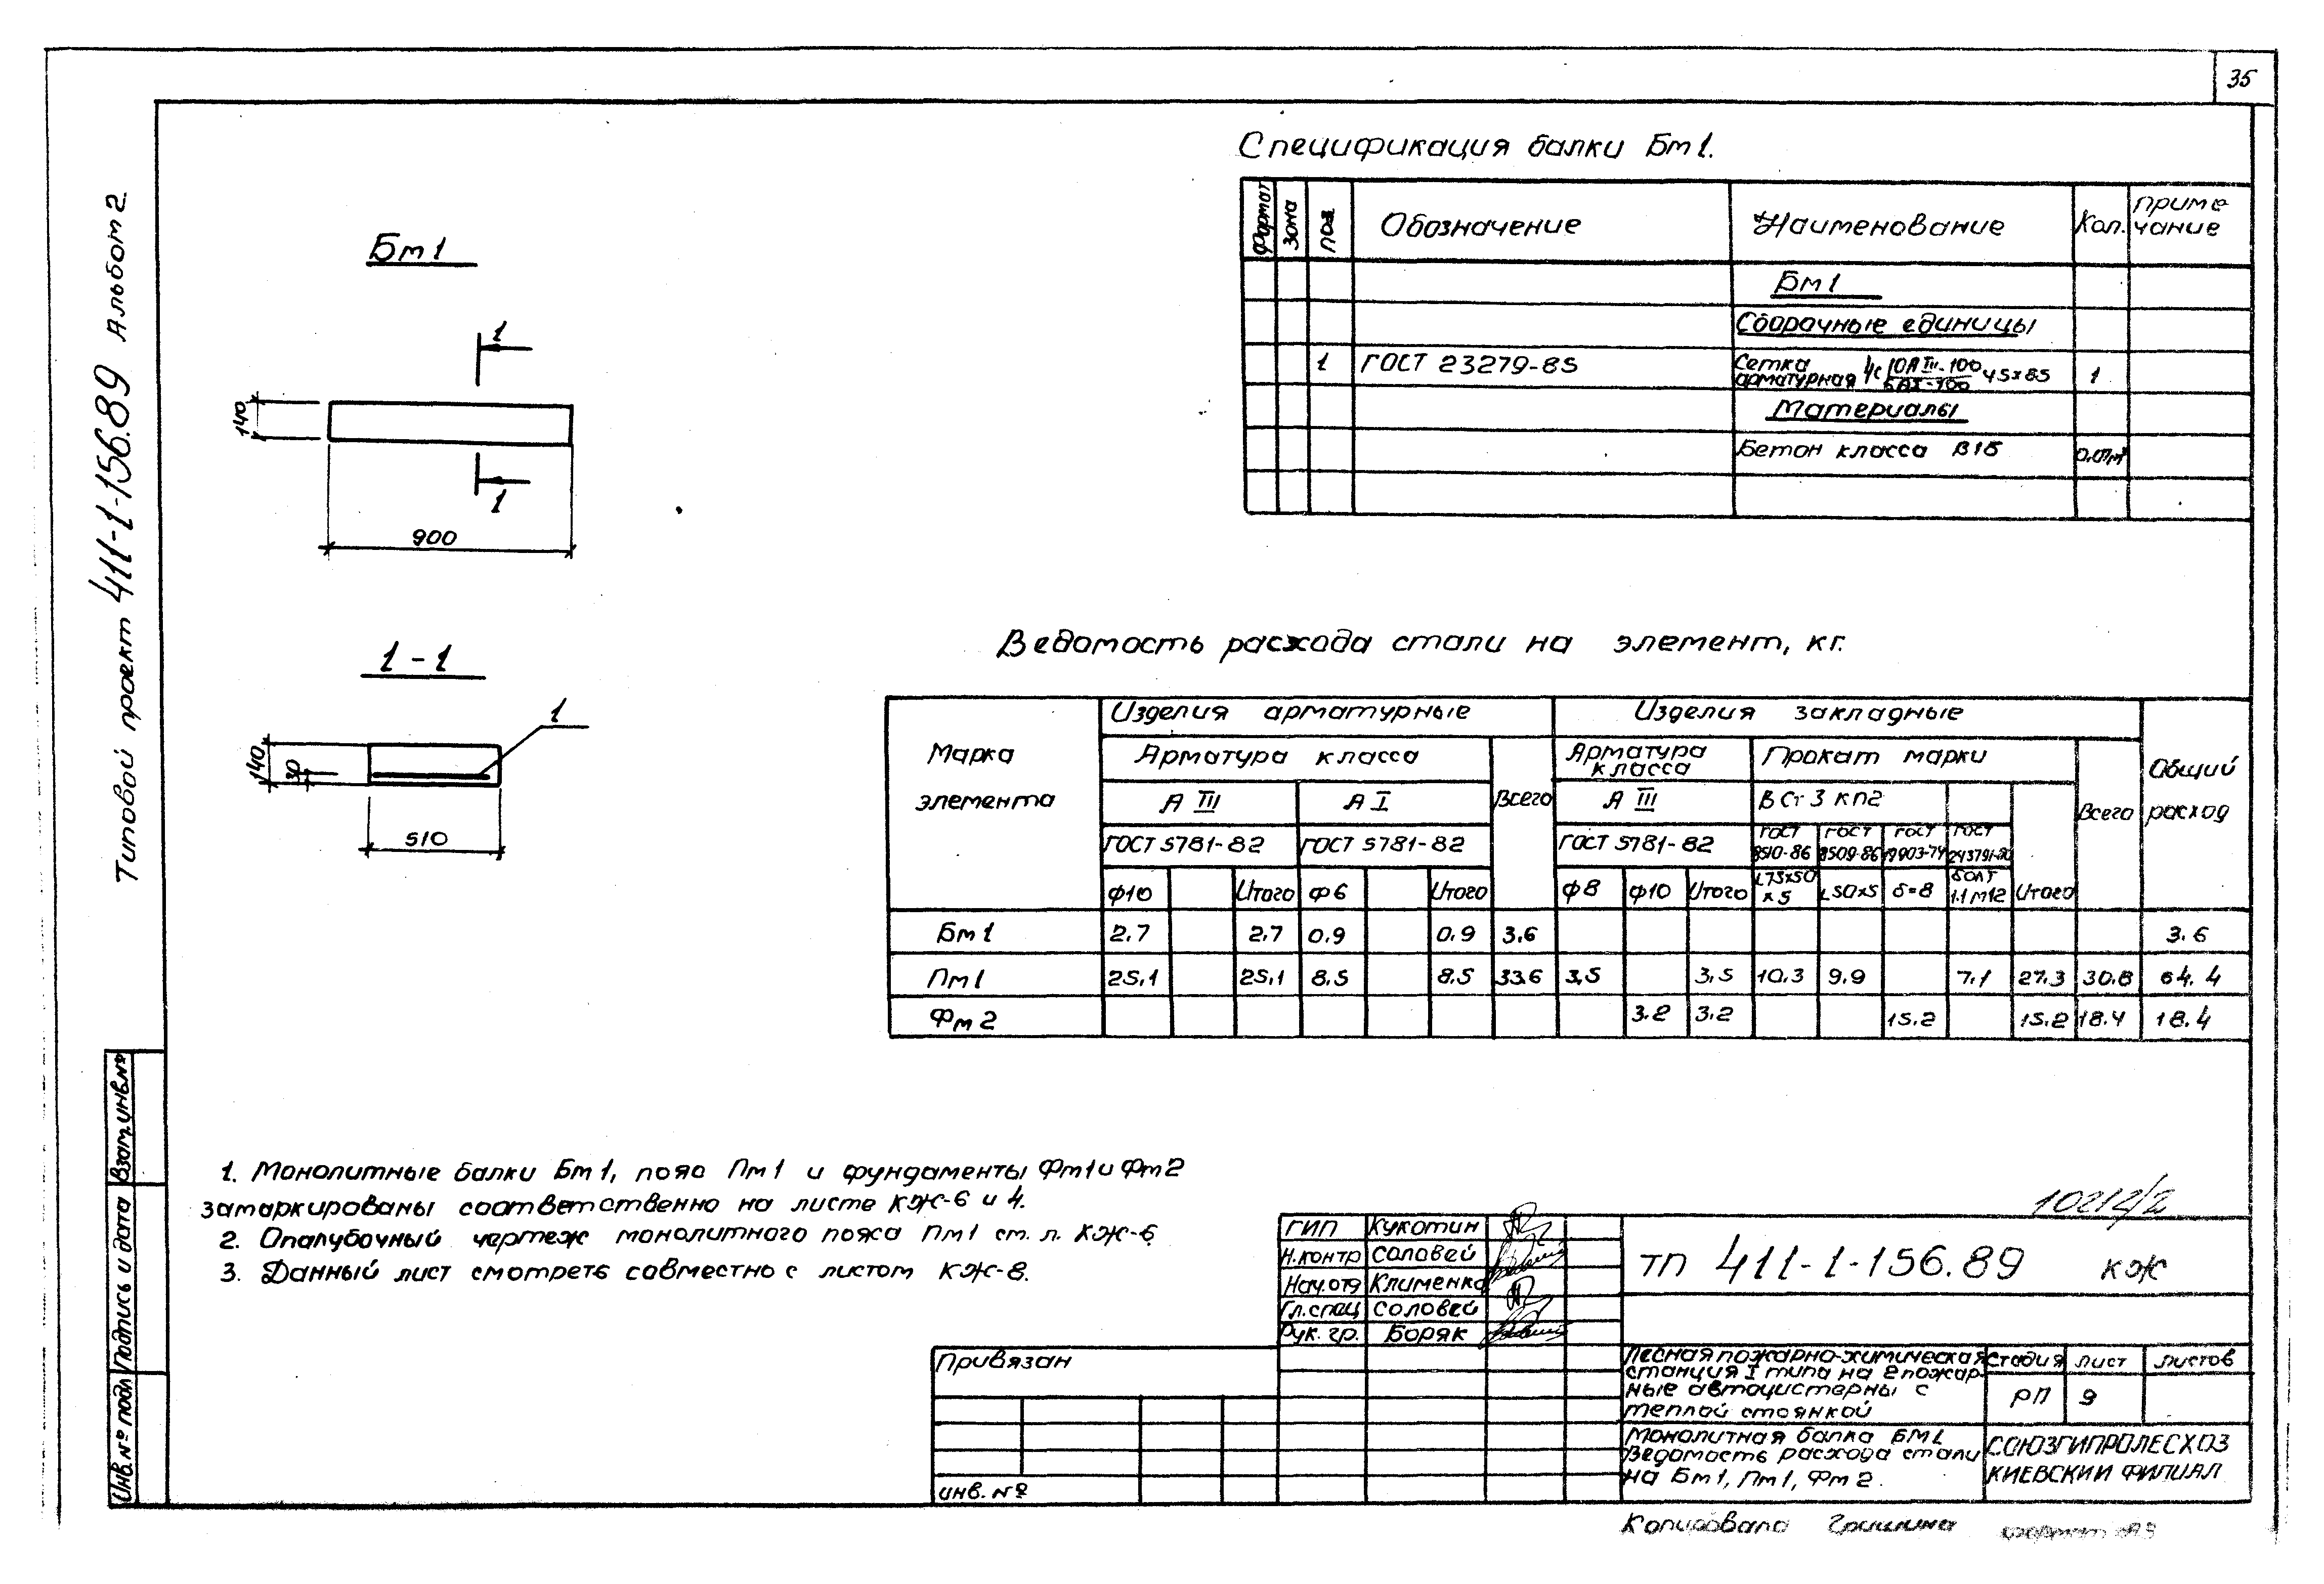 35
Типовой проект 411-1-156.89 Альбом 2
Бм1
1
1
140
900
1-1
1
140
30
510
Спецификация балки Бм1.
Формат Зона Поз Обозначение Наименование Кол. Приме
чание
Бм1
Сборочные единицы
1 ГОСТ 23279-85 Сетка арматурная 4с 10АIII-100 / 6АI-100 45×85 1
Материалы
Бетон класса В15
Ведомость расхода стали на элемент, кг.
Марка
элемента
Изделия арматурные Изделия закладные Общий
расход
Арматура класса Всего Арматура
класса Прокат марки Всего
А III А I А III ВСт3 кп2
ГОСТ 5781-82 ГОСТ 5781-82 ГОСТ 5781-82 ГОСТ
8510-86 ГОСТ
8509-86 ГОСТ
19903-74 ГОСТ
Ф10 Итого Ф6 Итого Ф8 Ф10 Итого L75×50
×5 L50×5 δ=8 Болт
1.1М12 Итого
Бм1 2.7 2.7 0.9 0.9 3.6 3.6
Пм1 25,1 25,1 8.5 8.5 33.6 3,5 3,5 10.3 9.9 7.1 27.3 30.8 64.4
Фм2 3.2 3.2 15.2 15.2 18.4 18.4
1. Монолитные балки Бм1, пояс Пм1 и фундаменты Фм1 и Фм2
замаркированы соответственно на листе КЖ-6 и 4.
2. Опалубочный чертеж монолитного пояса Пм1 см. л. КЖ-6.
3. Данный лист смотреть совместно с листом КЖ-8.
Взам.инв.№
Подпись и дата
Инв.№ подл
10212/2
ГИП Кукотин
Н.контр Соловей
Нач.отд Клименко
Гл.спец Соловей
Рук. гр. Боряк
ТП 411-1-156.89 КЖ
Привязан
инв. №
Лесная пожарно-химическая
станция I типа на 2 пожар-
ные автоцистерны с
теплой стоянкой
Стадия Лист Листов
РП 9
Монолитная балка БМ1
Ведомость расхода стали
на Бм1, Пм1, Фм2.
СОЮЗГИПРОЛЕСХОЗ
КИЕВСКИЙ ФИЛИАЛ
Копировала Гришина формат А3